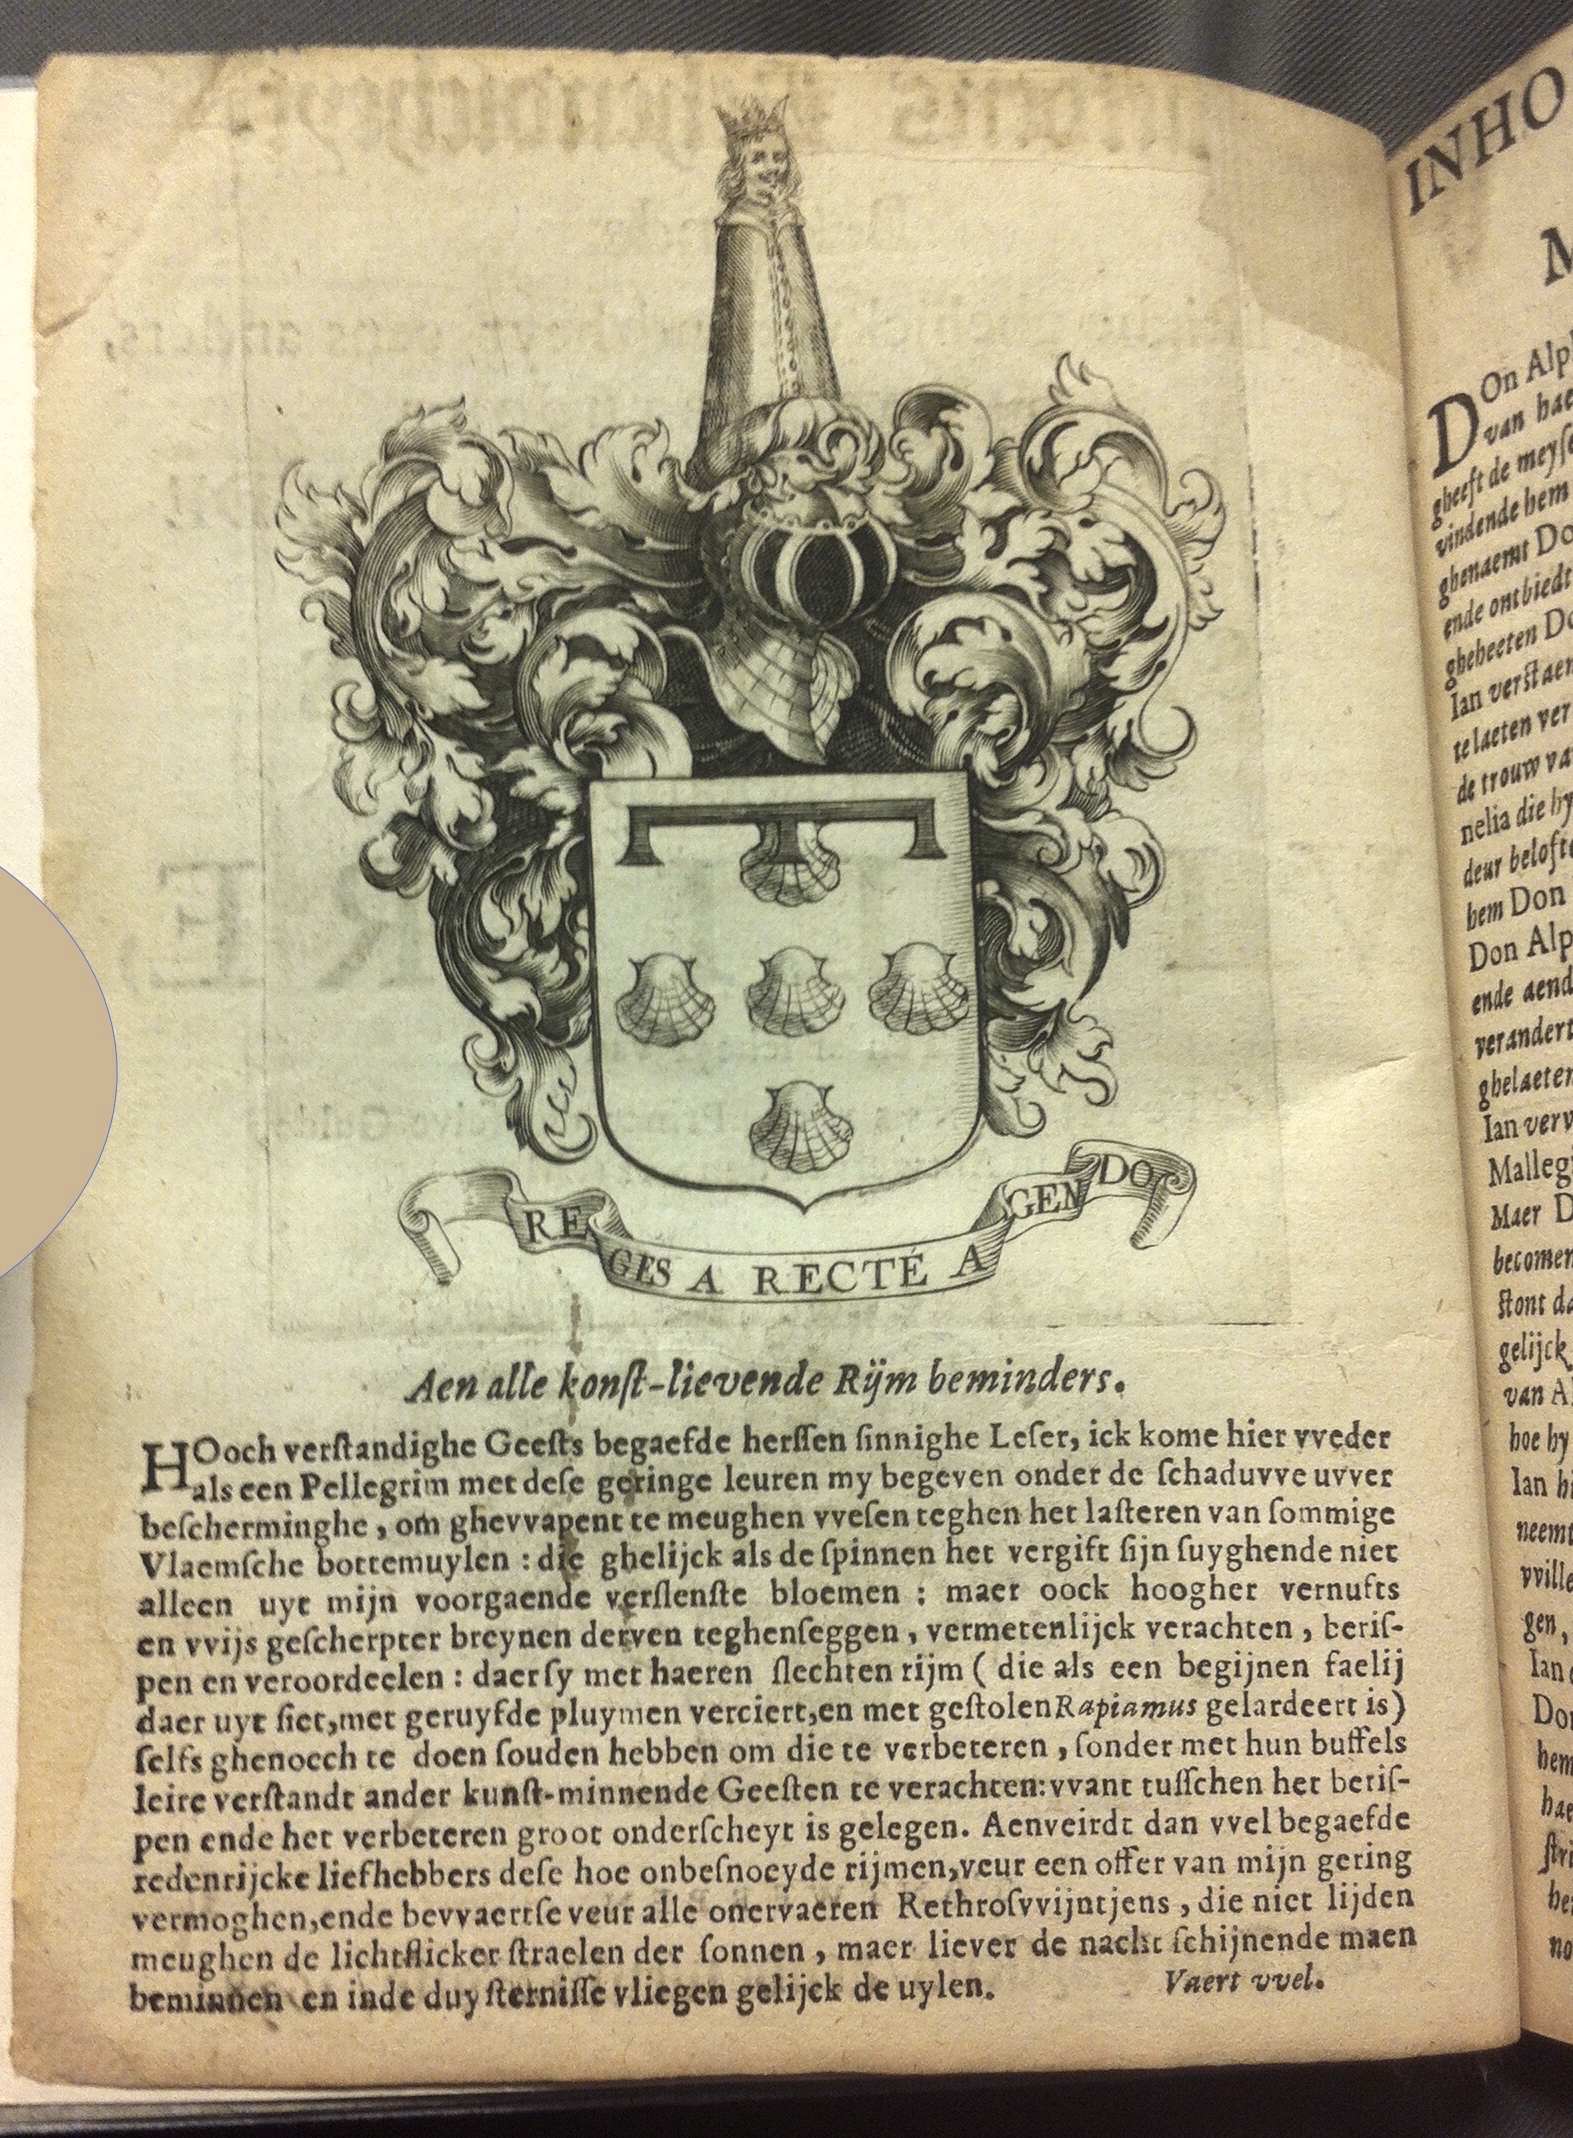 REGES A RECTÉ AGENDO
Aen alle konſt-lievende Rijm beminders.
HOoch verſtandighe Geeſts begaefde herſſen ſinnighe Leſer, ick kome hier vveder
als een Pellegrim met deſe geringe leuren my begeven onder de ſchaduvve uvver
beſcherminghe, om ghevvapent te meughen vveſen teghen het laſteren van ſommige
Vlaemſche bottemuylen : die ghelijck als de ſpinnen het vergift ſijn ſuyghende niet
alleen uyt mijn voorgaende verſlenſte bloemen ; maer oock hoogher vernufts
en vvijs geſcherpter breynen derven teghenſeggen, vermetenlijck verachten, beriſ-
pen en veroordeelen : daer ſy met haeren ſlechten rijm ( die als een begijnen faelij
daer uyt ſiet, met geruyfde pluymen verciert, en met geſtolen Rapiamus gelardeert is)
ſelfs ghenoech te doen ſouden hebben om die te verbeteren, ſonder met hun buffels
leire verſtandt ander kunſt-minnende Geeſten te verachten: vvant tuſſchen het beriſ-
pen ende het verbeteren groot onderſcheyt is gelegen. Aenveirdt dan vvel begaefde
redenrijcke liefhebbers deſe hoe onbeſnoeyde rijmen, veur een offer van mijn gering
vermoghen, ende bevvaertſe veur alle onervaeren Rethroſvvijntjens, die niet lijden
meughen de lichtflicker ſtraelen der ſonnen, maer liever de nacht ſchijnende maen
beminnen en inde duyſterniſſe vliegen gelijck de uylen.
Vaert vvel.
INHO
M
DOn Alp
van hae
gheeft de meyſ
vindende hem
ghenaemt Do
ende ontbiedt
gheheeten Do
Ian verſtaen
te laeten ver
de trouw va
nelia die hy
deur beloft
hem Don
Don Alp
ende aend
verandert
ghelaeten
Ian verv
Mallegi
Maer D
becomen
ſtont da
gelijck
van A
hoe hy
Ian hi
neemt
vville
gen,
Ian
Do
hem
hae
ſtri
he
no